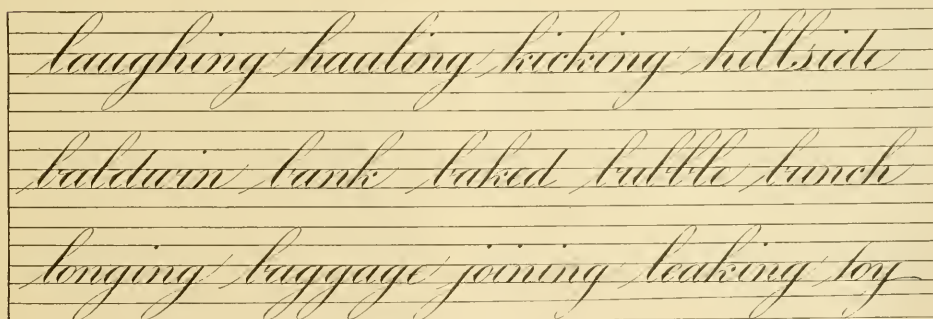 laughing hauling kicking hillside
baldwin bank baked bubble bunch
longing luggage joining leaking toy